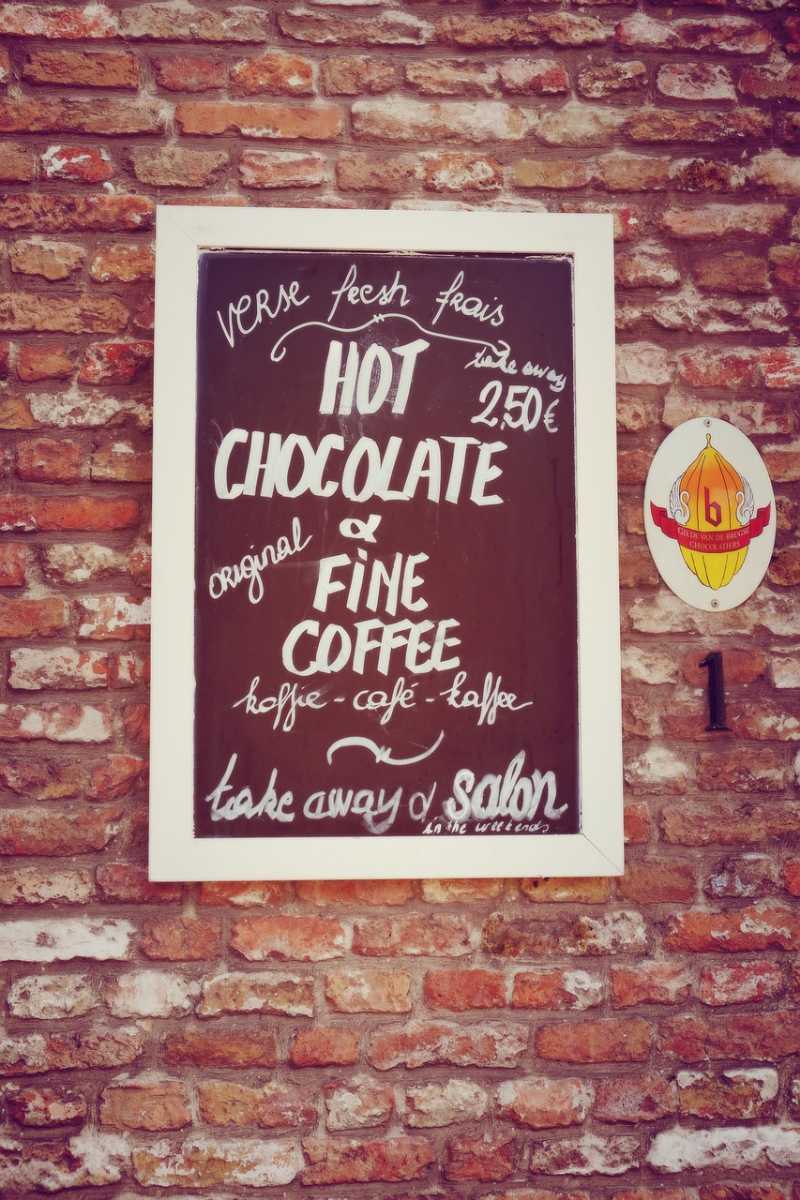 verse fresh frais
HOT
take away
2,50€
CHOCOLATE
&
original
FINE
COFFEE
koffie - café - kaffee
take away & salon
in the weekends
b
GILDE VAN DE BRUGSE
CHOCOLATIERS
1